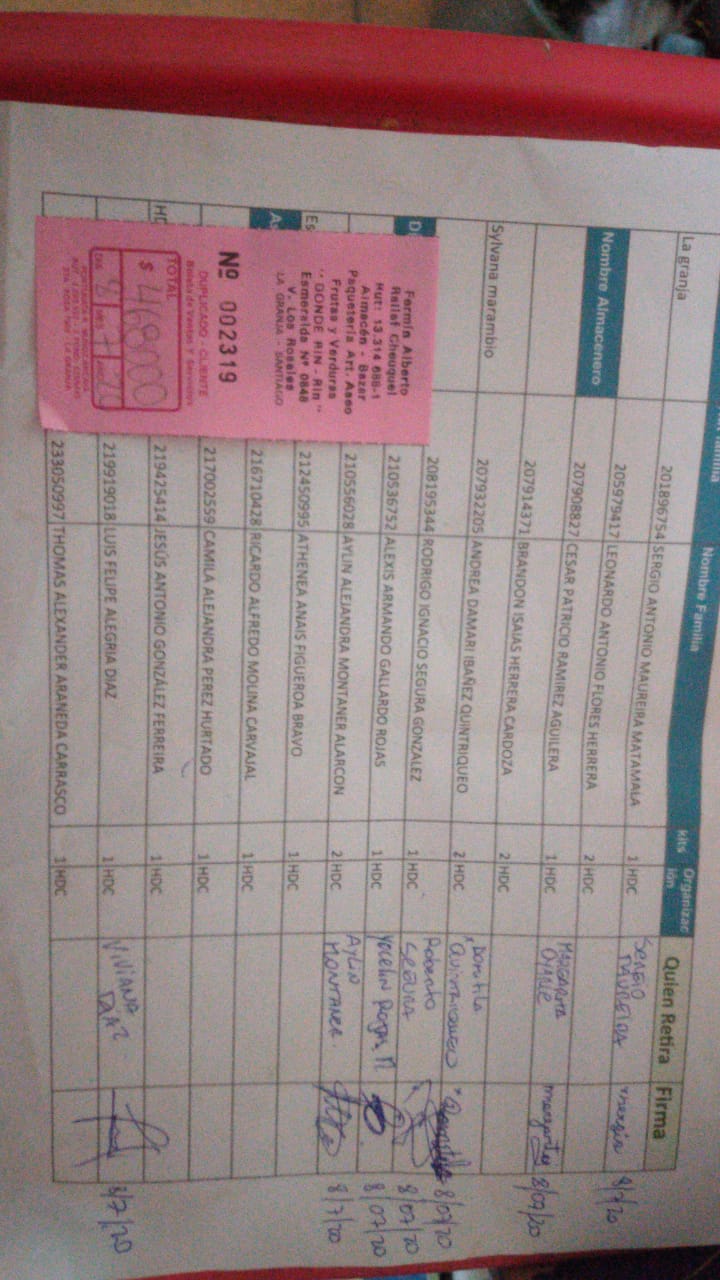 Nombre Familia kits Organizac ión Quien Retira Firma
La granja 201896754 SERGIO ANTONIO MAUREIRA MATAMALA 1 HDC SERGIO MAUREIRA 8/7/20
205979417 LEONARDO ANTONIO FLORES HERRERA 2 HDC
Nombre Almacenero 207908827 CESAR PATRICIO RAMIREZ AGUILERA 1 HDC MARGARITA 8/07/20
207914371 BRANDON ISAIAS HERRERA CARDOZA 2 HDC
Sylvana marambio 207932205 ANDREA DAMARI IBAÑEZ QUINTRIQUEO 2 HDC Domitila Quintriqueo 8/07/20
208195344 RODRIGO IGNACIO SEGURA GONZALEZ 1 HDC Roberto SEGURA 8/07/20
210536752 ALEXIS ARMANDO GALLARDO ROJAS 1 HDC Yocelin Rojas M. 8/07/20
210556028 AYLIN ALEJANDRA MONTANER ALARCON 2 HDC AYLIN MONTANER. 8/7/20
212450995 ATHENEA ANAIS FIGUEROA BRAVO 1 HDC
216710428 RICARDO ALFREDO MOLINA CARVAJAL 1 HDC
217002559 CAMILA ALEJANDRA PEREZ HURTADO 1 HDC
219425414 JESÚS ANTONIO GONZÁLEZ FERREIRA 1 HDC
219919018 LUIS FELIPE ALEGRIA DIAZ 1 HDC VIVIANA DIAZ 8/7/20
233050997 THOMAS ALEXANDER ARANEDA CARRASCO 1 HDC
Fermín Alberto
Railaf Cheuquel
Rut: 13.314.688-1
Almacén - Bazar
Paquetería Art. Aseo
Frutas y Verduras
"DONDE RIN - Rin"
Esmeralda Nº 0848
V. Los Rosales
LA GRANJA - SANTIAGO
Nº 002319
DUPLICADO - CLIENTE
Boleta de Ventas y Servicios
TOTAL
$ 468000
DIA 8 MES 7 20